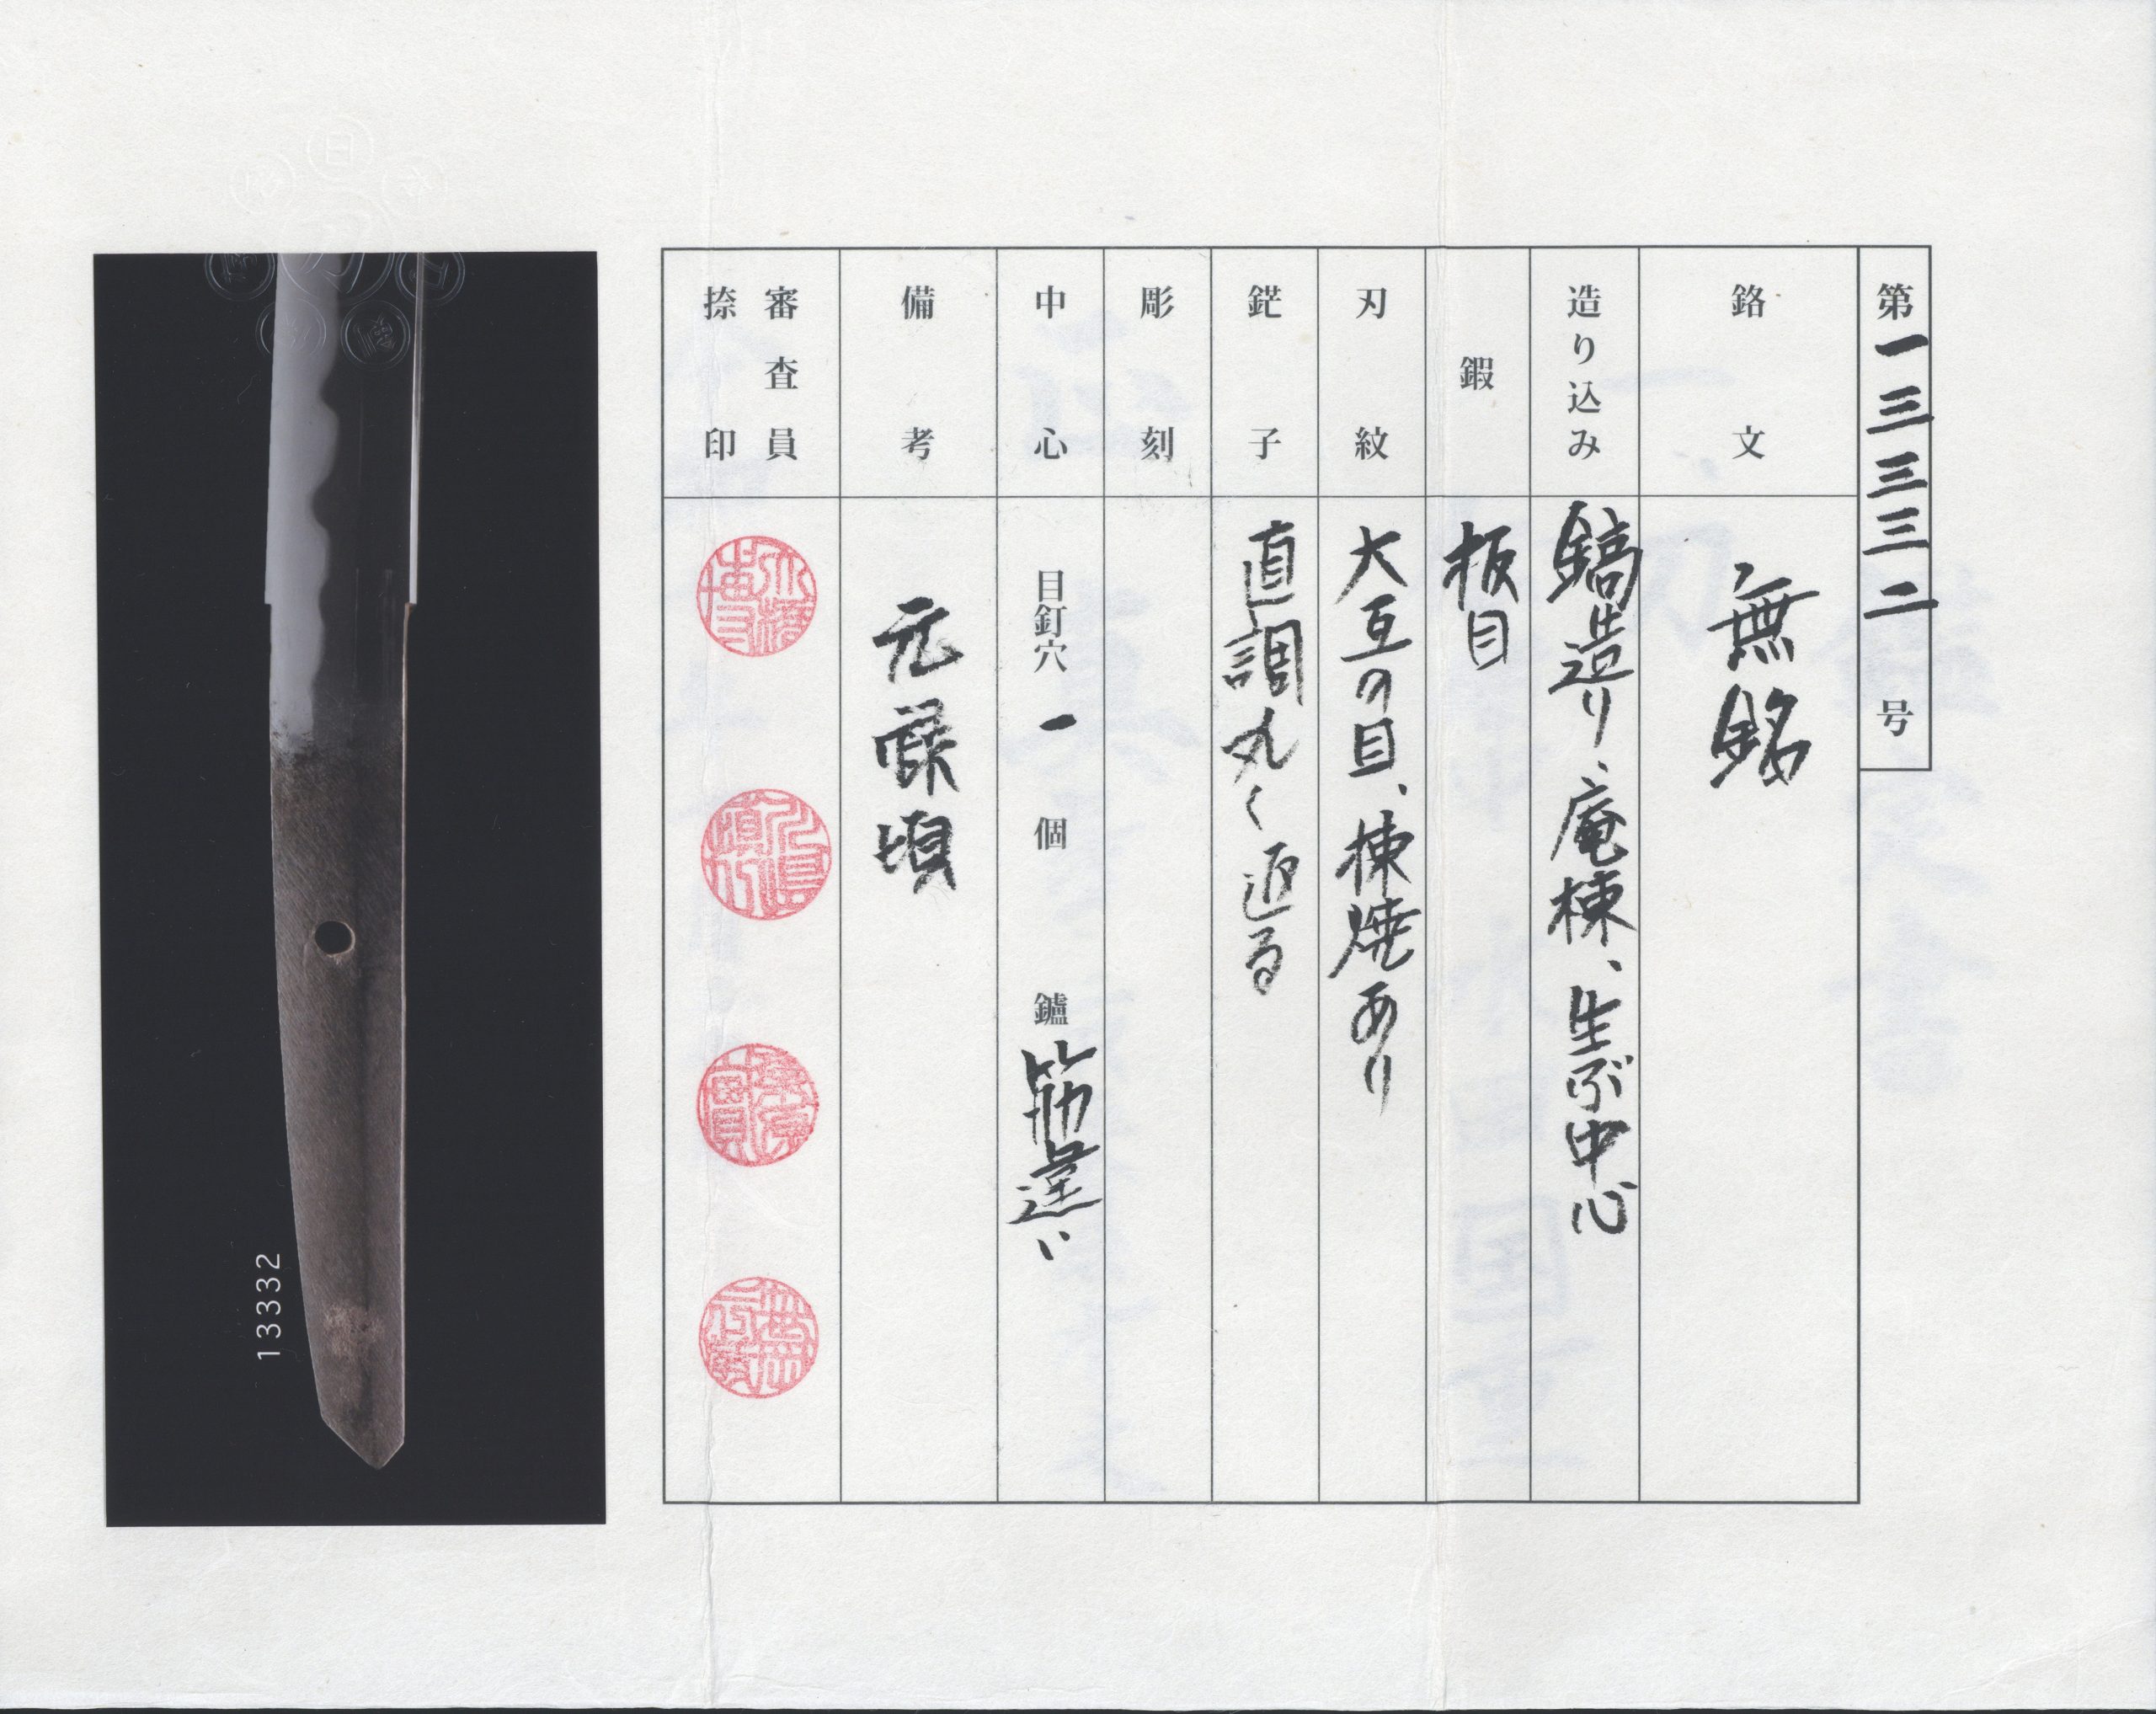 第一三三三二号
銘文
無銘
造り込み
鎬造り、庵棟、生ぶ中心
鍜
板目
刃紋
大互の目、棟焼あり
鋩子
直調丸く返る
彫刻
中心
目釘穴 一 個 鑢 筋違い
備考
元禄頃
審査員
捺印
13332